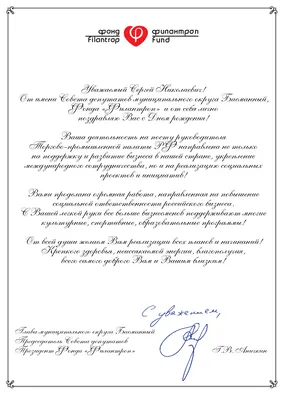 фонд филантроп
Filantrop Fund
Уважаемый Сергей Николаевич!
От имени Совета депутатов муниципального округа Басманный,
Фонда «Филантроп» и от себя лично
поздравляю Вас с Днем рождения!
Ваша деятельность на посту руководителя
Торгово-промышленной палаты РФ направлена не только
на поддержку и развитие бизнеса в нашей стране, укрепление
международного сотрудничества, но и на реализацию социальных
проектов и инициатив!
Вами проделана огромная работа, направленная на повышение
социальной ответственности российского бизнеса,
С Вашей легкой руки все больше бизнесменов поддерживают многие
культурные, спортивные, образовательные программы!
От всей души желаем Вам реализации всех планов и начинаний!
Крепкого здоровья, неиссякаемой энергии, благополучия,
всего самого доброго Вам и Вашим близким!
С уважением,
Глава муниципального округа Басманный
Председатель Совета депутатов
Президент Фонда «Филантроп»
Г.В. Аничкин